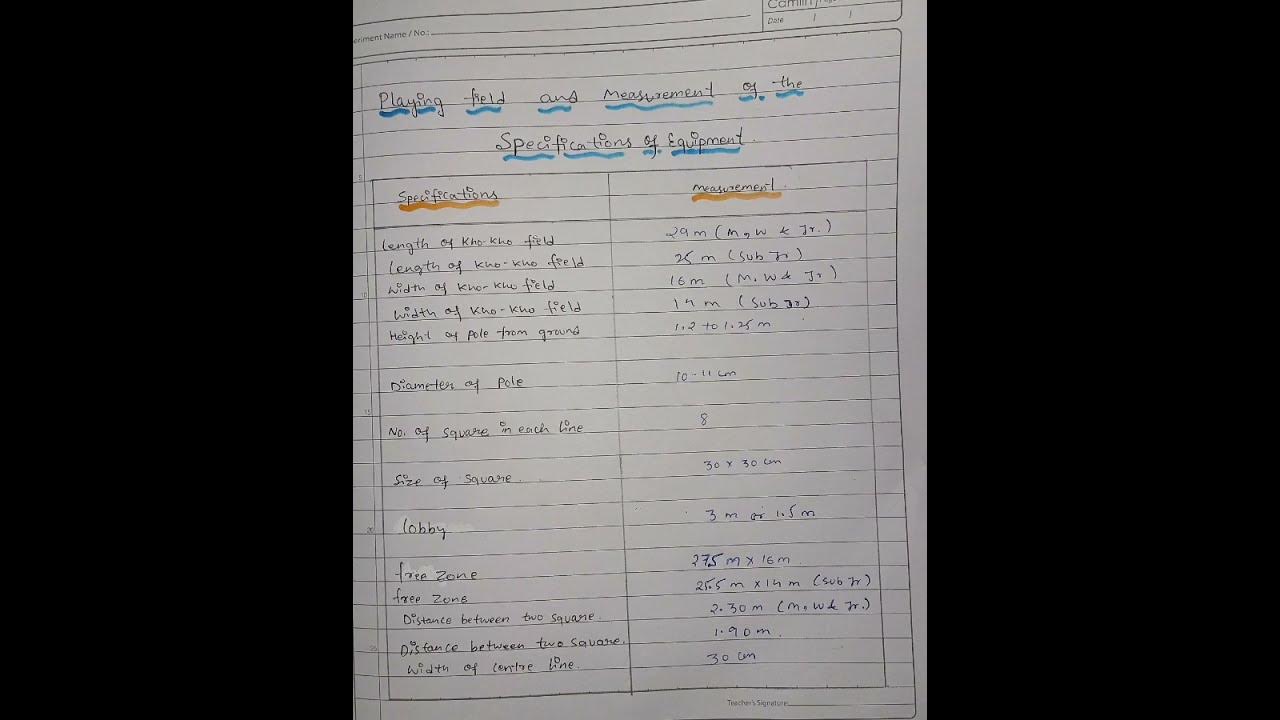 Camlin
Date / /
eriment Name / No.:
Playing field and Measurement of the
Specifications of Equipment.
Specifications measurement.
Length of Kho-Kho field 29 m (M, W & Jr.)
Length of Kho-Kho field 25 m (Sub Jr)
Width of Kho-Kho field 16 m (M, W & Jr)
Width of Kho-Kho field 14 m (Sub Jr)
Height of Pole from ground 1.2 to 1.25 m
Diameter of Pole 10-11 cm
No. of square in each line 8
Size of square. 30 x 30 cm
Lobby 3 m or 1.5 m
free zone 275 m x 16 m.
free zone 25.5 m x 14 m (Sub Jr)
Distance between two square. 2.30 m (M, W & Jr.)
Distance between two square. 1.90 m.
Width of Centre line. 30 cm
Teacher's Signature